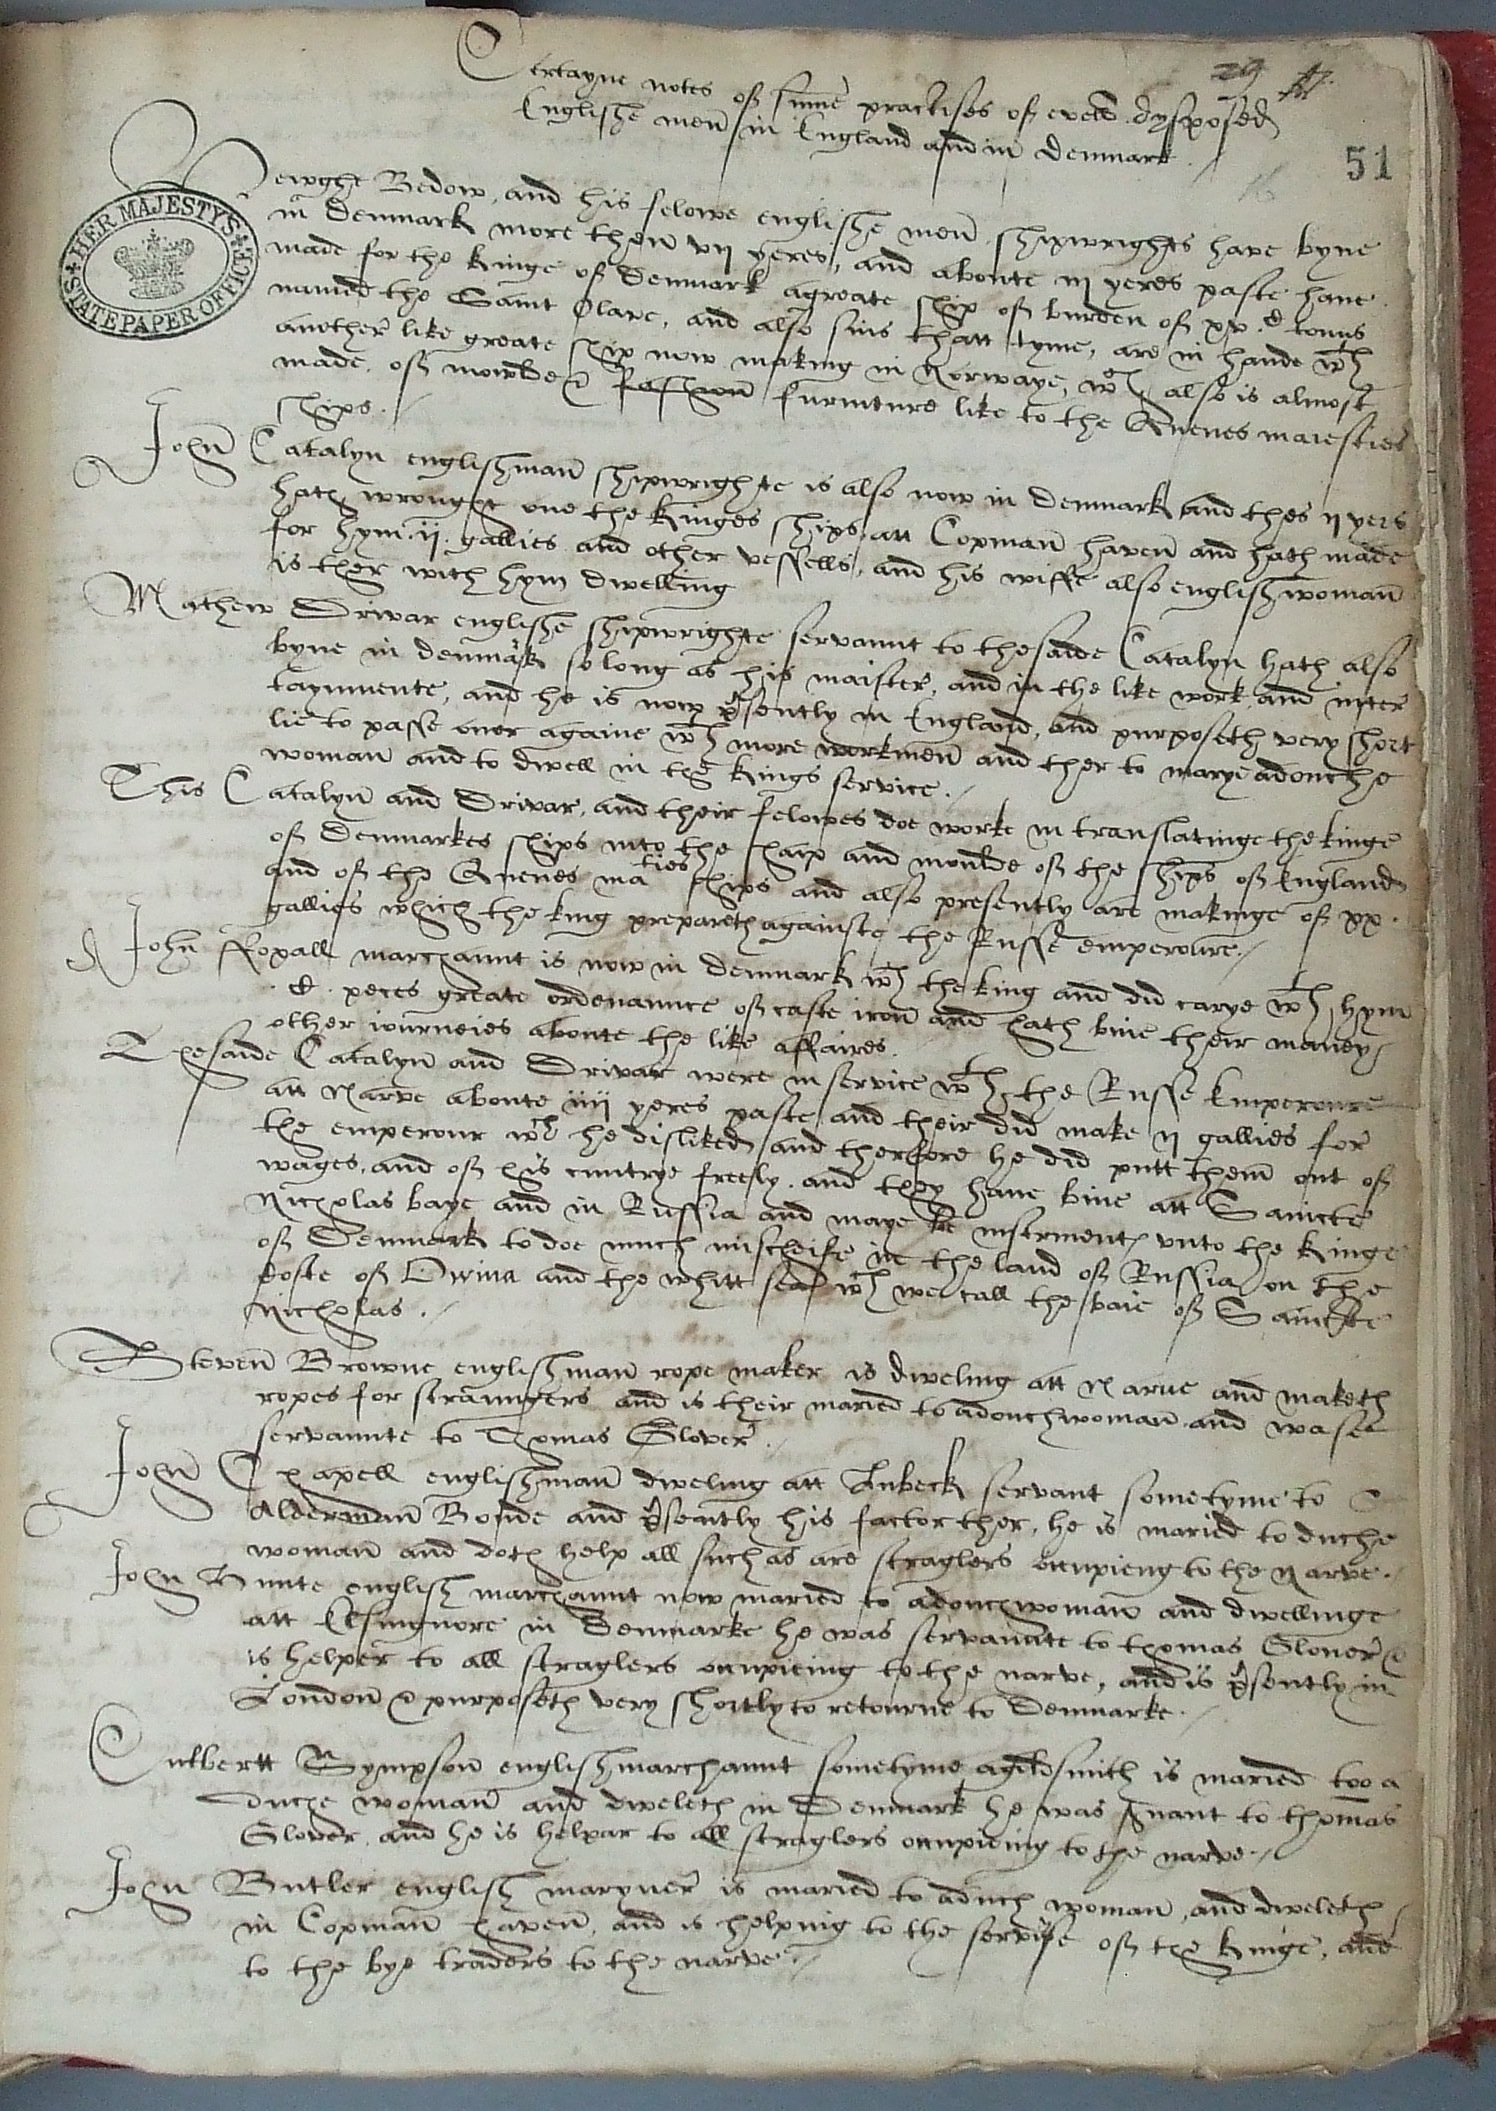 29
51
Certayne notes off sume practises off evell dysposed
Englishe men in England and in denmark
HER MAJESTY'S STATE PAPER OFFICE
Hewght Bedow, and his felowe englishe men shipwrights have byne
in denmark more then vii yeres, and aboute iii yeres paste have
made for the kinge off denmark a greate ship off burden off xv C tonns
named the Saint Olave, and also sins thatt tyme, are in hande wth
another like greate ship now making in Norwaye, wch also is almost
made, off mowlde & fashion furniture like to the Quenes maiesties
ships.
John Catalyn englishman shipwrighte is also now in denmark and thes ii yers
hath wrought one the kinges ships att Copman haven and hath made
for hym ii gallies and other vessells, and his wiffe also englishwoman
is ther with hym dwelling
Mathew Drivar englishe shipwrighte servaunt to the saide Catalyn hath also
byne in denmark so long as his maister, and in the like work, and inter
taynmente, and he is now presently in England, and purposeth very short
lie to passe over againe wth more workmen and ther to marye a douche
woman and to dwell in the kings service.
This Catalyn and Drivar, and their felowes doe worke in translatinge the kinge
off Denmarkes ships into the shaip and moulde off the ships off England
and off the Quenes maties ships and also presently are makinge off xx
gallies which the king prepareth againste the Russe emperoure.
John Foxall marchaunt is now in denmark wth the king and did carye wth hym
C peces greate ordenaunce off caste iron and hath bine their maney
other iourneies aboute the like affaires.
The saide Catalyn and Drivar were in service wth the Russe Emperoure
att Narve aboute iiii yeres paste and their did make ii gallies for
the emperour wch he disliked and therfore he did putt them out off
wages, and off his cuntrye freely, and they have bine att Saincte
Nicholas baye and in Russia and maye be insterments unto the kinge
off Denmark to doe much mischeife in the land off Russia on the
coste off Dwina and the whitt sea wch we call the baie off Saincte
Nicholas.
Steven Browne englishman rope maker is dweling att Narve and maketh
ropes for straungers and is their maried to a douchwoman and was
servaunte to Thomas Glover.
John Chapell englishman dweling att Lubeck servant sometyme to
Alderman Bonde and presently his factor ther, he is maried to duche
woman and doth help all such as are straglers occupieng to the Narve.
John english marchaunt now maried to a douchwoman and dwellinge
att Elsingnore in Denmarke he was servaunte to thomas Glover &
is helper to all straglers occupieing to the narve, and is presently in
London & purposeth very shortly to retourne to Denmarke.
Cutbertt Sympson english marchaunt sometyme a goldsmith is maried too a
duche woman and dweleth in Denmark he was servant to thomas
Glover and he is helpar to all straglers occupieing to the narve.
John Butler english maryner is maried to a duch woman, and dweleth
in Copman haven, and is helping to the servise off the kinge, and
to the bye traders to the narve.